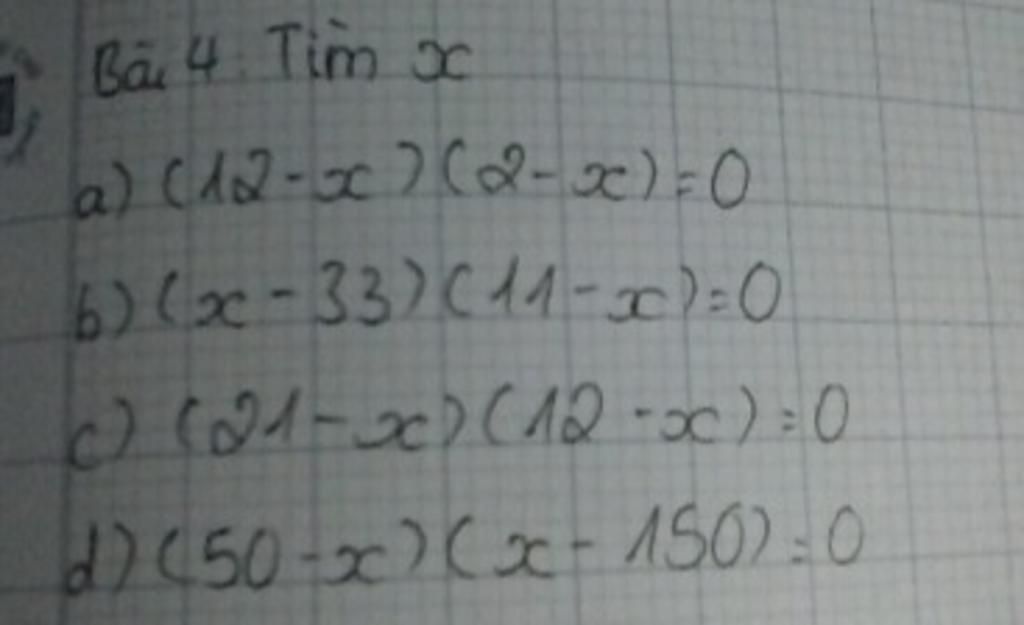 Bài 4: Tìm x
a) (12 - x)(2 - x) = 0
b) (x - 33)(11 - x) = 0
c) (21 - x)(12 - x) = 0
d) (50 - x)(x - 150) = 0